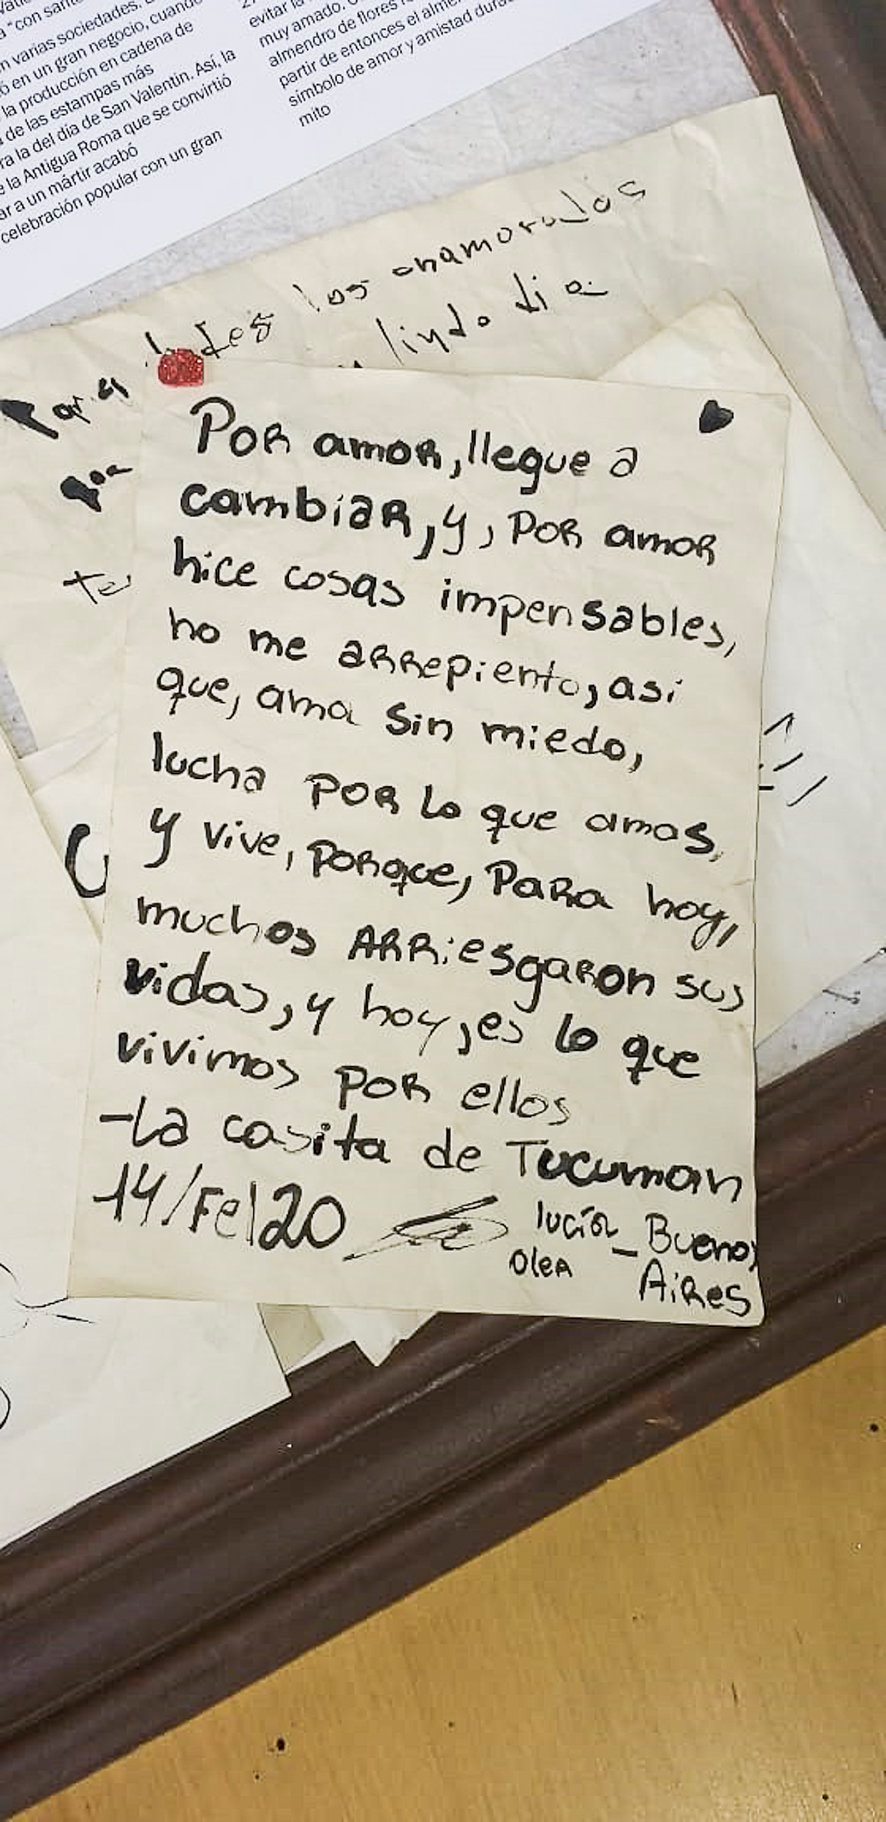 "con sant
n varias sociedades.
ó en un gran negocio, cuando
la producción en cadena de
de las estampas más
ra la del día de San Valentín. Así, la
e la Antigua Roma que se convirtió
ar a un mártir acabó
celebración popular con un gran
evitar la
muy amado.
almendro de flores
partir de entonces el alme
símbolo de amor y amistad dura
mito
Para todos los enamorados
lindo dia
por
te
Por amor, llegue a
cambiar, y, por amor
hice cosas impensables,
no me arrepiento, asi
que, ama sin miedo,
lucha por lo que amas,
y vive, porque, para hoy,
muchos arriesgaron sus
vidas, y hoy, es lo que
vivimos por ellos
-La casita de Tucuman
14/Fe/20
lucía - Buenos
Olea Aires